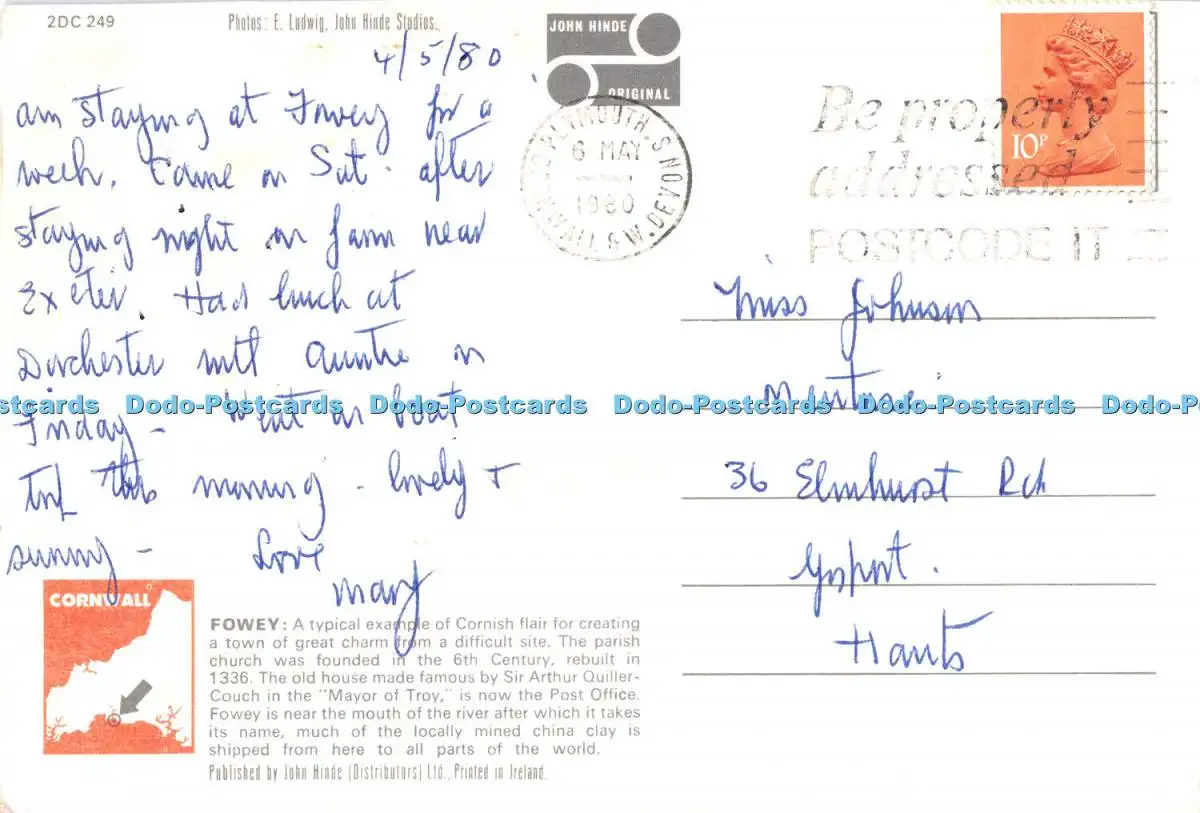 2DC 249
Photos: E. Ludwig, John Hinde Studios.
4/5/80
am staying at Fowey for a
week. Came on Sat. after
staying night on farm near
Exeter. Had lunch at
Dorchester with Auntie on
Friday - Went on boat
trip this morning - lovely +
sunny - Love
Mary
CORNWALL
FOWEY: A typical example of Cornish flair for creating
a town of great charm from a difficult site. The parish
church was founded in the 6th Century, rebuilt in
1336. The old house made famous by Sir Arthur Quiller-
Couch in the "Mayor of Troy," is now the Post Office.
Fowey is near the mouth of the river after which it takes
its name, much of the locally mined china clay is
shipped from here to all parts of the world.
Published by John Hinde (Distributors) Ltd., Printed in Ireland.
JOHN HINDE
ORIGINAL
PLYMOUTH. S. DEVON
6 MAY
1980
CORNWALL & W. DEVON
Be properly
addressed
POSTCODE IT
10P
Miss Johnson
36 Elmhurst Rd
Gosport.
Hants
Dodo-Postcards Dodo-Postcards Dodo-Postcards Dodo-Postcards